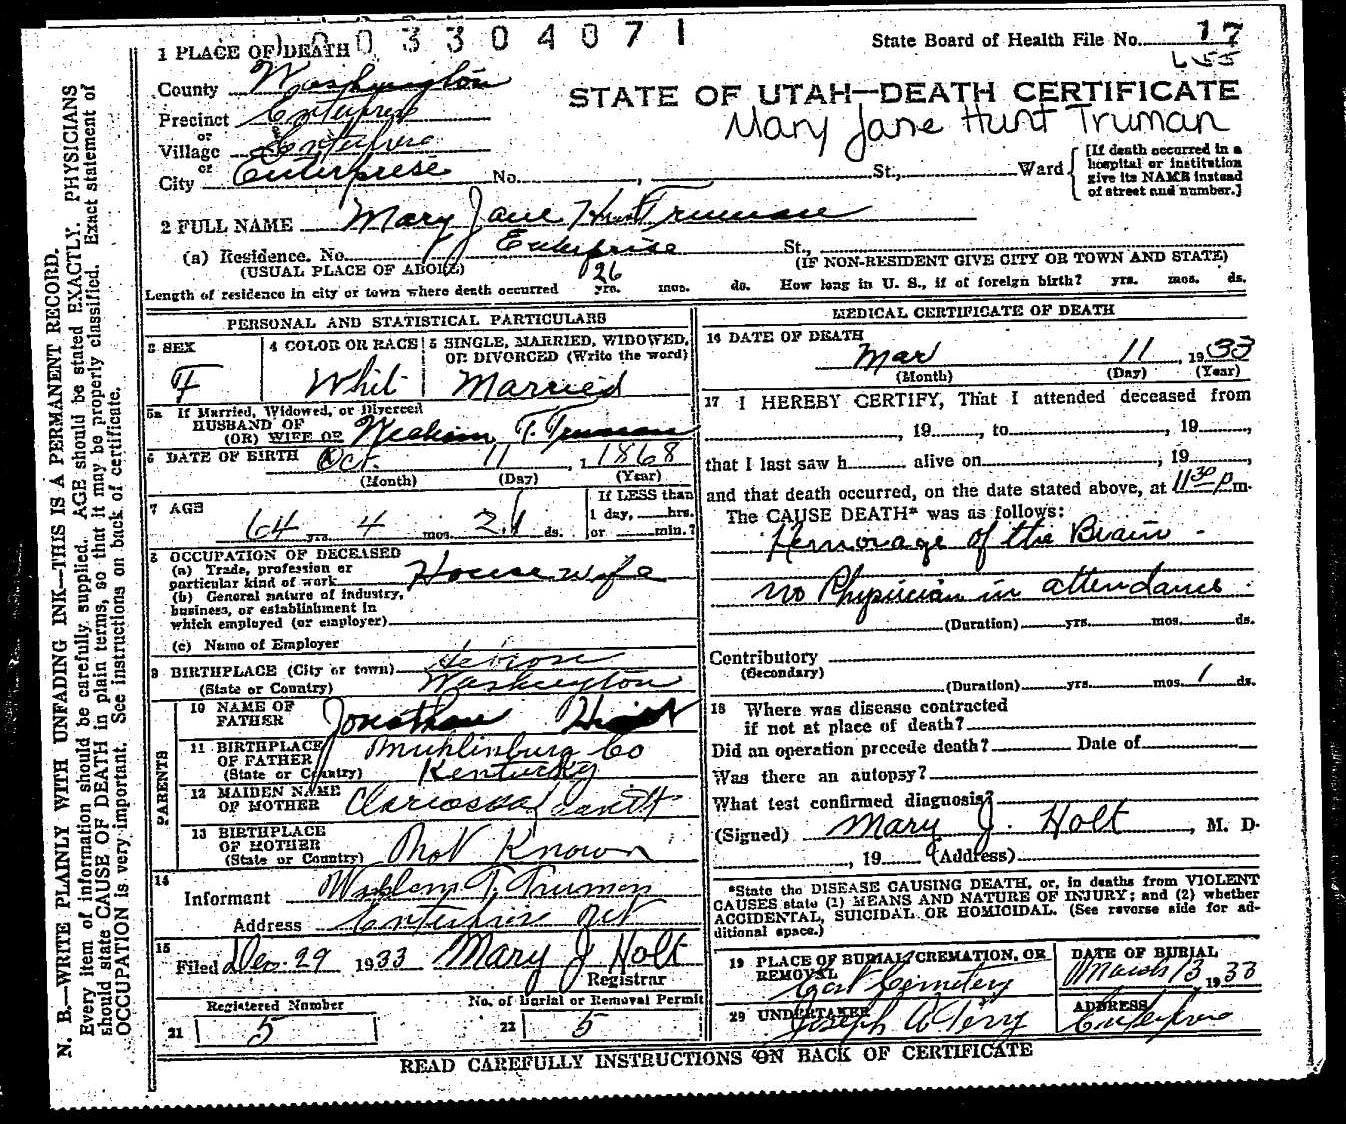 1003304071
State Board of Health File No. 17
STATE OF UTAH—DEATH CERTIFICATE
Mary Jane Hunt Truman
1 PLACE OF DEATH
County Washington
Precinct Enterprise
or
Village Enterprise
or
City Enterprise No. , St., Ward
[If death occurred in a
hospital or institution
give its NAME instead
of street and number.]
2 FULL NAME Mary Jane Hunt Truman
(a) Residence. No. Enterprise St.,
(USUAL PLACE OF ABODE) (IF NON-RESIDENT GIVE CITY OR TOWN AND STATE)
Length of residence in city or town where death occurred 26 yrs. mos. ds. How long in U. S., if of foreign birth? yrs. mos. ds.
PERSONAL AND STATISTICAL PARTICULARS
3 SEX
F
4 COLOR OR RACE
Whit
5 SINGLE, MARRIED, WIDOWED,
OR DIVORCED (Write the word)
Married
5a If Married, Widowed, or Divorced
HUSBAND OF
(OR) WIFE OF William T. Truman
6 DATE OF BIRTH Oct. 11, 1868
(Month) (Day) (Year)
7 AGE
64 yrs. 4 mos. 21 ds.
If LESS than
1 day, hrs.
or min.?
8 OCCUPATION OF DECEASED
(a) Trade, profession or
particular kind of work House wife
(b) General nature of industry,
business, or establishment in
which employed (or employer)
(c) Name of Employer
9 BIRTHPLACE (City or town)
(State or Country) Washington
PARENTS
10 NAME OF
FATHER Jonathan
11 BIRTHPLACE
OF FATHER Muhlinburg Co
(State or Country) Kentucky
12 MAIDEN NAME
OF MOTHER
13 BIRTHPLACE
OF MOTHER
(State or Country) Not Known
14
Informant William T. Truman
Address Enterprise Ut
15
Filed Dec. 29 1933 Mary J Holt
Registrar
Registered Number
21 5
No. of Burial or Removal Permit
22 5
MEDICAL CERTIFICATE OF DEATH
16 DATE OF DEATH
Mar 11, 1933
(Month) (Day) (Year)
17 I HEREBY CERTIFY, That I attended deceased from
, 19 , to , 19 ,
that I last saw h alive on , 19 ,
and that death occurred, on the date stated above, at 11 30 p m.
The CAUSE DEATH* was as follows:
Hemorage of the Brain
no Physician in attendance
(Duration) yrs. mos. ds.
Contributory
(Secondary)
(Duration) yrs. mos. 1 ds.
18 Where was disease contracted
if not at place of death?
Did an operation precede death? Date of
Was there an autopsy?
What test confirmed diagnosis?
(Signed) Mary J. Holt, M. D.
, 19 (Address)
*State the DISEASE CAUSING DEATH, or, in deaths from VIOLENT
CAUSES state (1) MEANS AND NATURE OF INJURY; and (2) whether
ACCIDENTAL, SUICIDAL OR HOMICIDAL. (See reverse side for ad-
ditional space.)
19 PLACE OF BURIAL, CREMATION, OR
REMOVAL
Cemetery
DATE OF BURIAL
March 13 1933
20 UNDERTAKER
Joseph A Terry
ADDRESS
Enterprise
READ CAREFULLY INSTRUCTIONS ON BACK OF CERTIFICATE
N. B.—WRITE PLAINLY WITH UNFADING INK—THIS IS A PERMANENT RECORD.
Every item of information should be carefully supplied. AGE should be stated EXACTLY. PHYSICIANS
should state CAUSE OF DEATH in plain terms, so that it may be properly classified. Exact statement of
OCCUPATION is very important. See instructions on back of certificate.